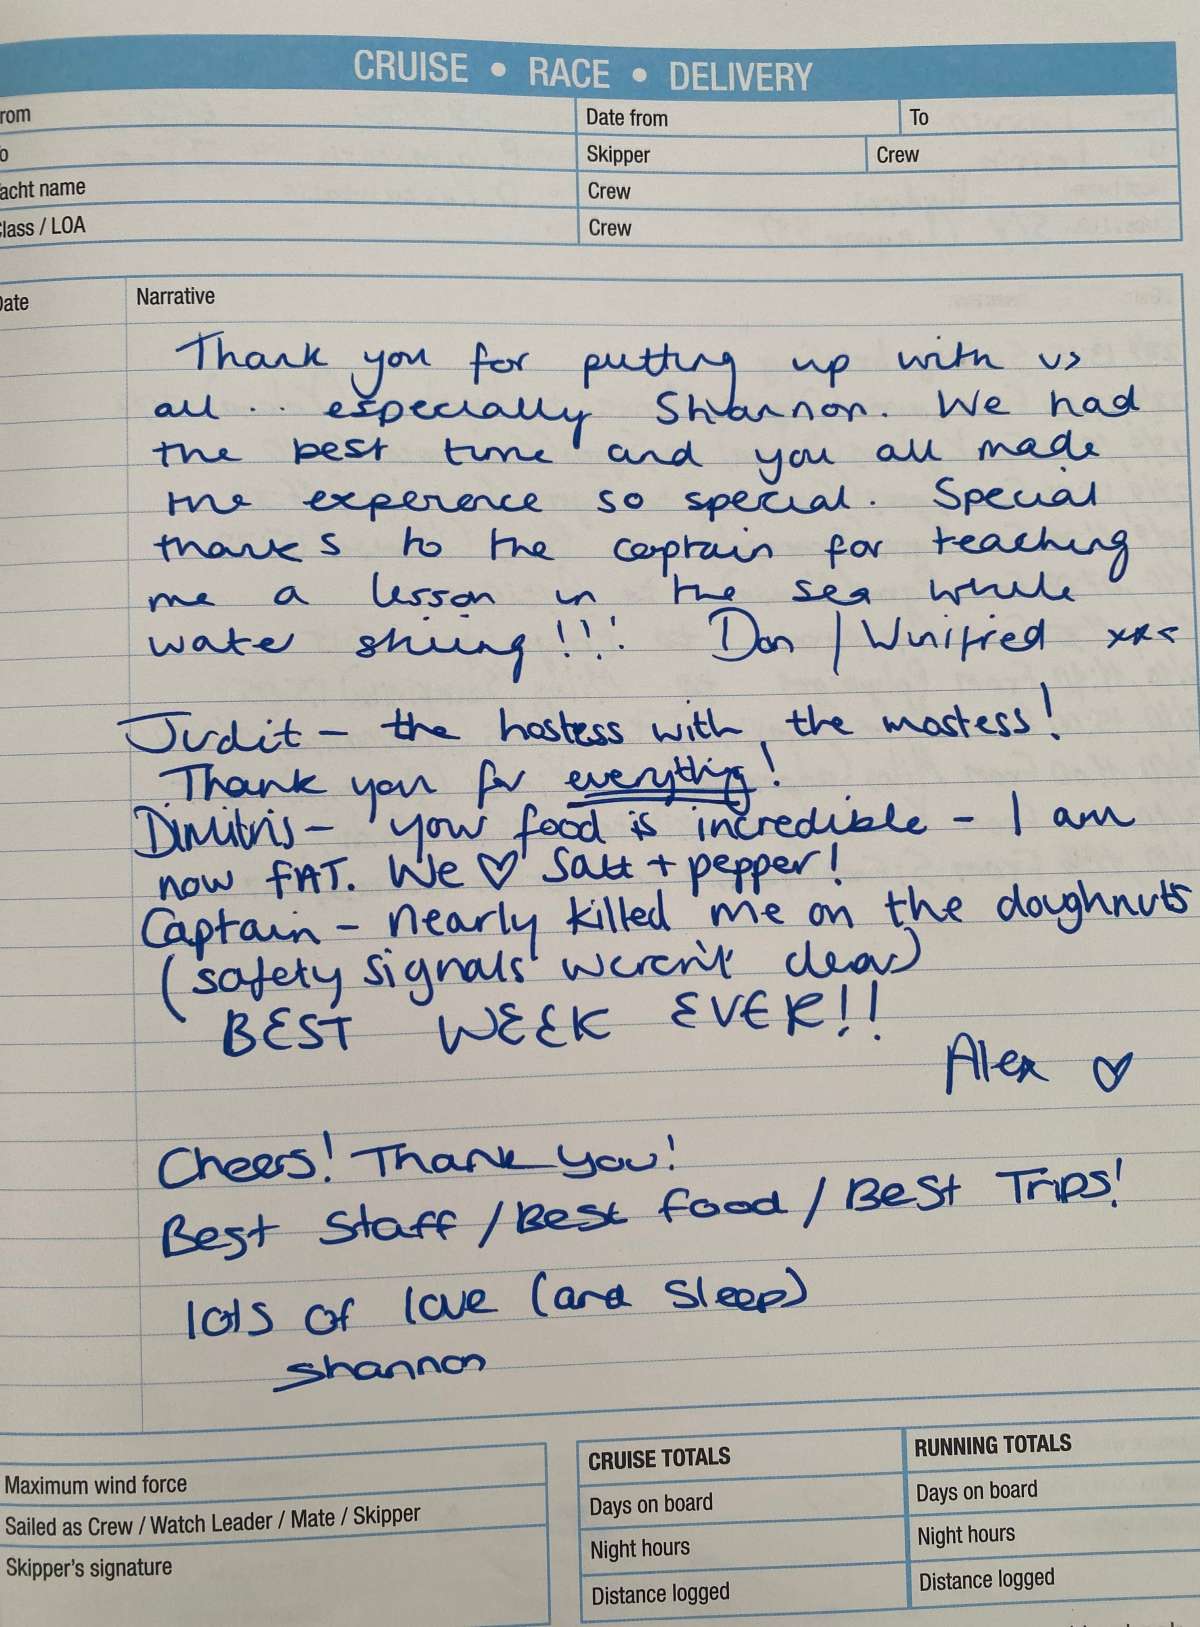 CRUISE • RACE • DELIVERY
rom
Date from
To
o
Skipper
Crew
acht name
Crew
lass / LOA
Crew
Date
Narrative
Thank you for putting up with us
all .. especially Shannon. We had
the best time and you all made
the experence so special. Special
thanks to the captain for teaching
me a lesson in the sea while
water skiing!!! Dan / Winifred xxx
Judit - the hostess with the mostess!
Thank you for everything!
Dimitris - your food is incredible - I am
now FAT. We ♡ Salt + pepper!
Captain - nearly killed me on the doughnuts
(safety signals weren't clear)
BEST WEEK EVER!!
Alex ♡
Cheers! Thank you!
Best Staff / Best food / Best Trips!
lots of love (and sleep)
Shannon
Maximum wind force
Sailed as Crew / Watch Leader / Mate / Skipper
Skipper's signature
CRUISE TOTALS
RUNNING TOTALS
Days on board
Days on board
Night hours
Night hours
Distance logged
Distance logged